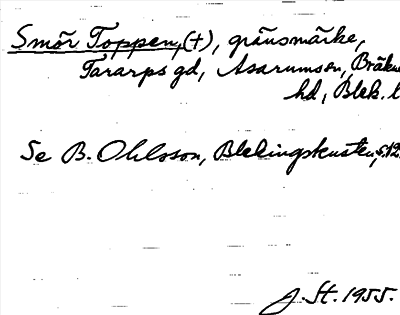 Smör Toppen, (+), gränsmärke,
Tararps gd, Asarums sn, Bräkne
hd, Blek. l
Se B. Ohlsson, Blekingskusten, s. 12
J. St. 1955.